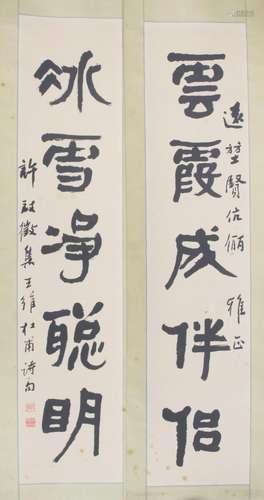 雲霞成伴侶
遠堃賢伉儷雅正
冰雪淨聰明
集王維杜甫詩句